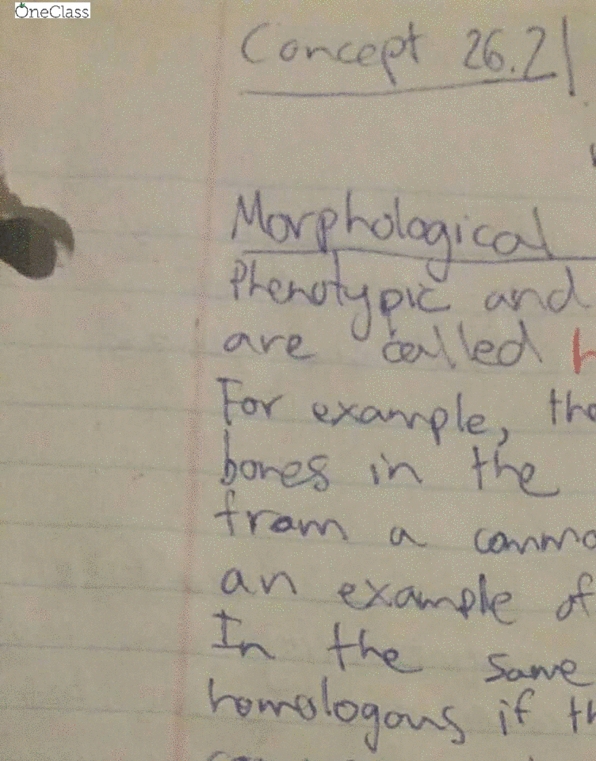 OneClass
Concept 26.2
Morphological
Phenotypic and
are called
For example, the
bones in the
from a commo
an example of
In the same
homologous if th